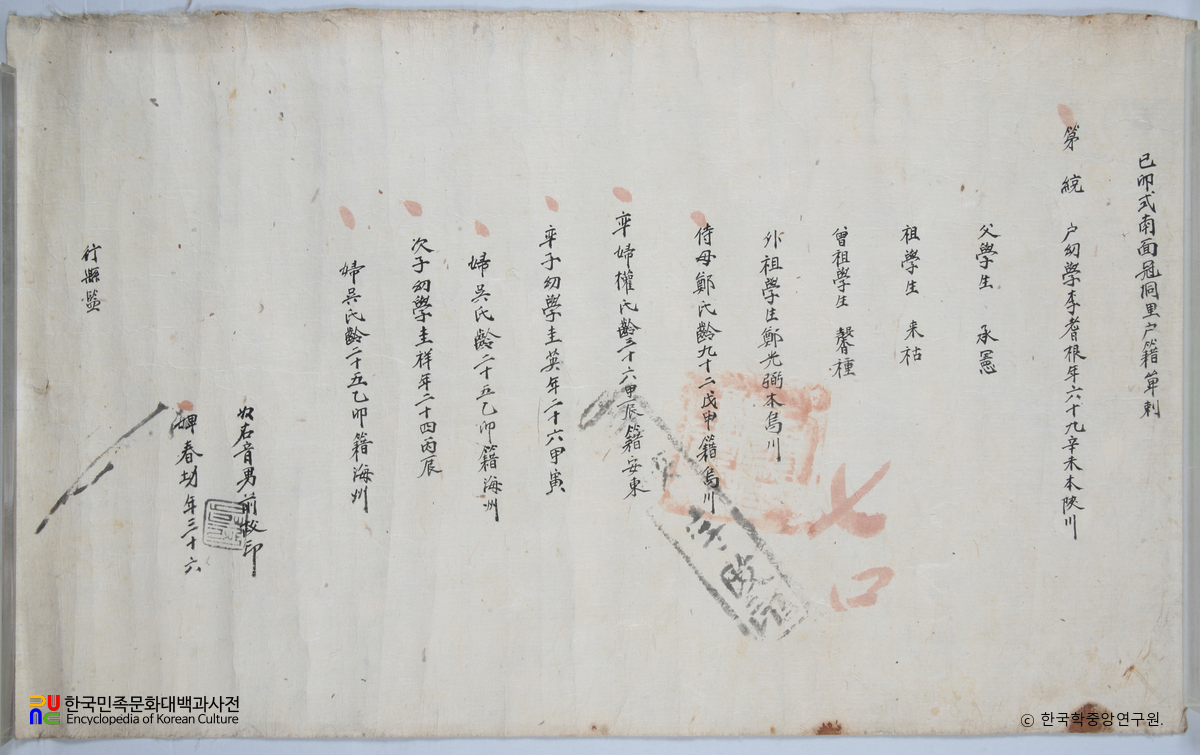 己卯式南面冠洞里户籍單剌
第 統 户幼學李耆根年六十九辛未本陜川
父學生 承憲
祖學生 来祜
曾祖學生 馨種
外祖學生鄭光弼本烏川
侍母鄭氏齡九十二戊申籍烏川
率婦權氏齡三十六甲辰籍安東
率子幼學圭英年二十六甲寅
婦吳氏齡二十五乙卯籍海州
次子幼學圭祥年二十四丙辰
婦吳氏齡二十五乙卯籍海州
奴右音男前
婢春切年三十六
行縣監
七口
한국민족문화대백과사전
Encyclopedia of Korean Culture
© 한국학중앙연구원.